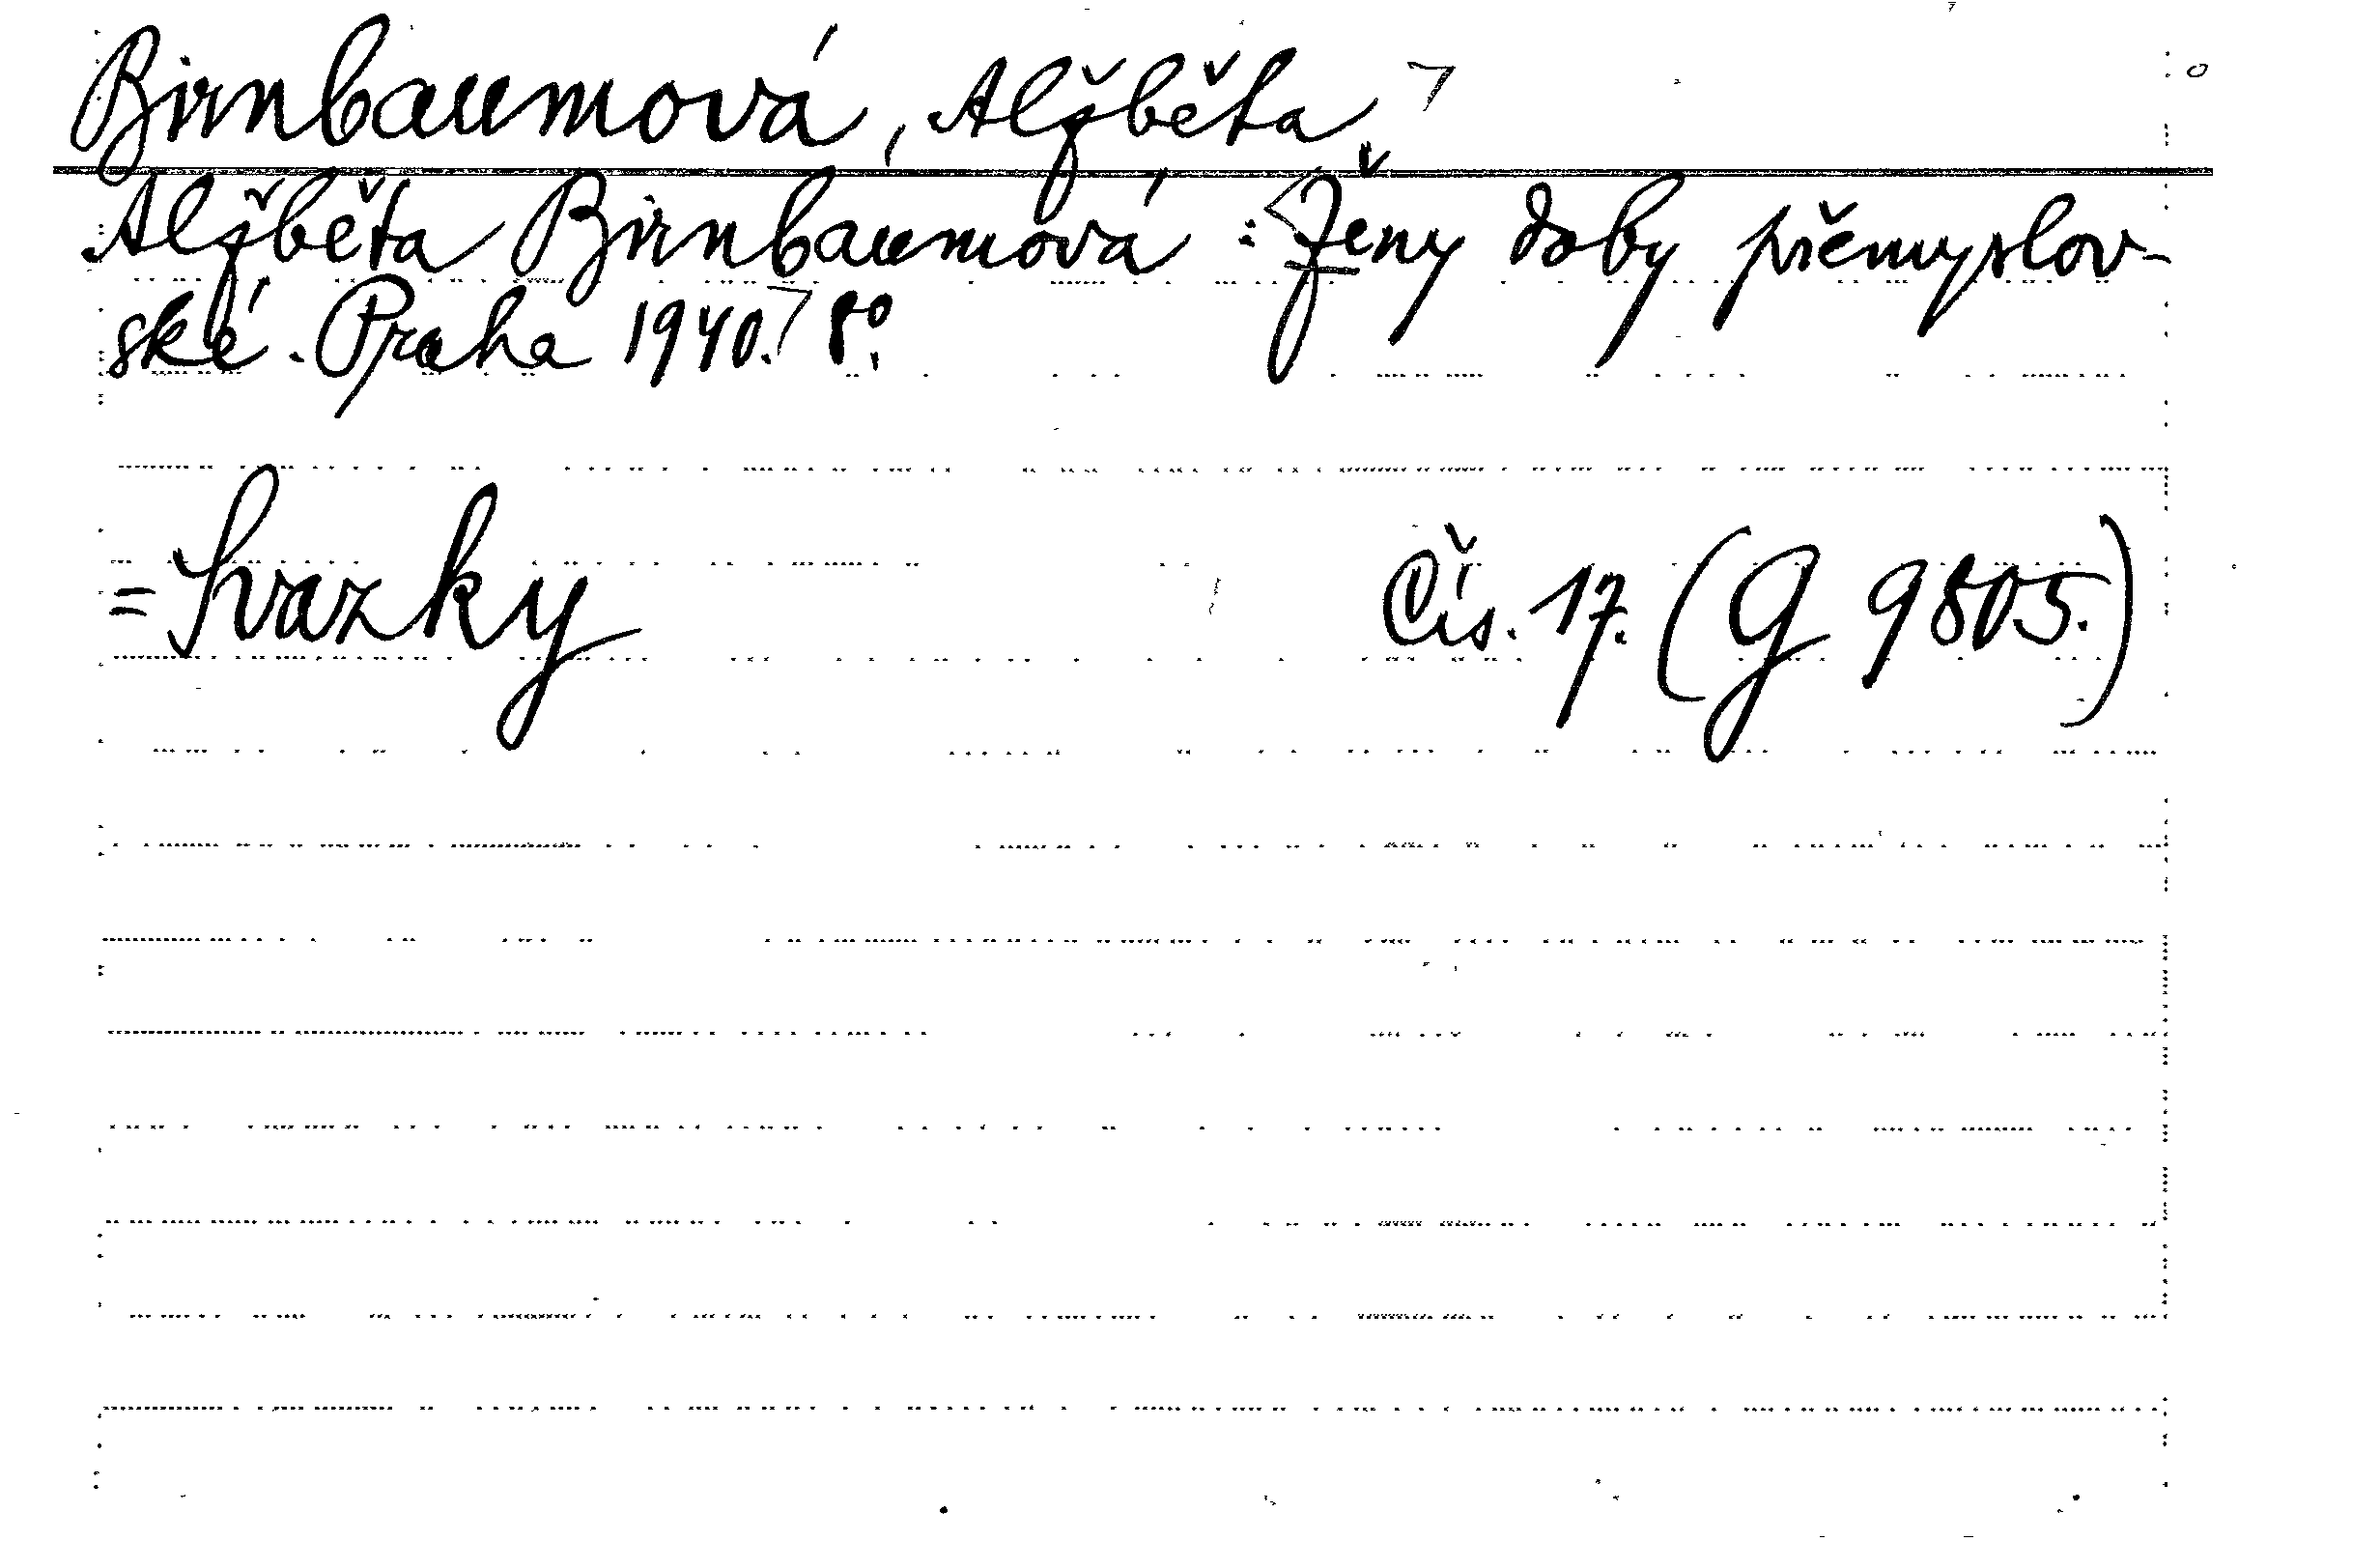 Birnbaumová, Alžběta.
Alžběta Birnbaumová: Ženy doby přemyslov-
ské. Praha 1940. 8°.
= Svazky Čís. 17. (G 9805.)